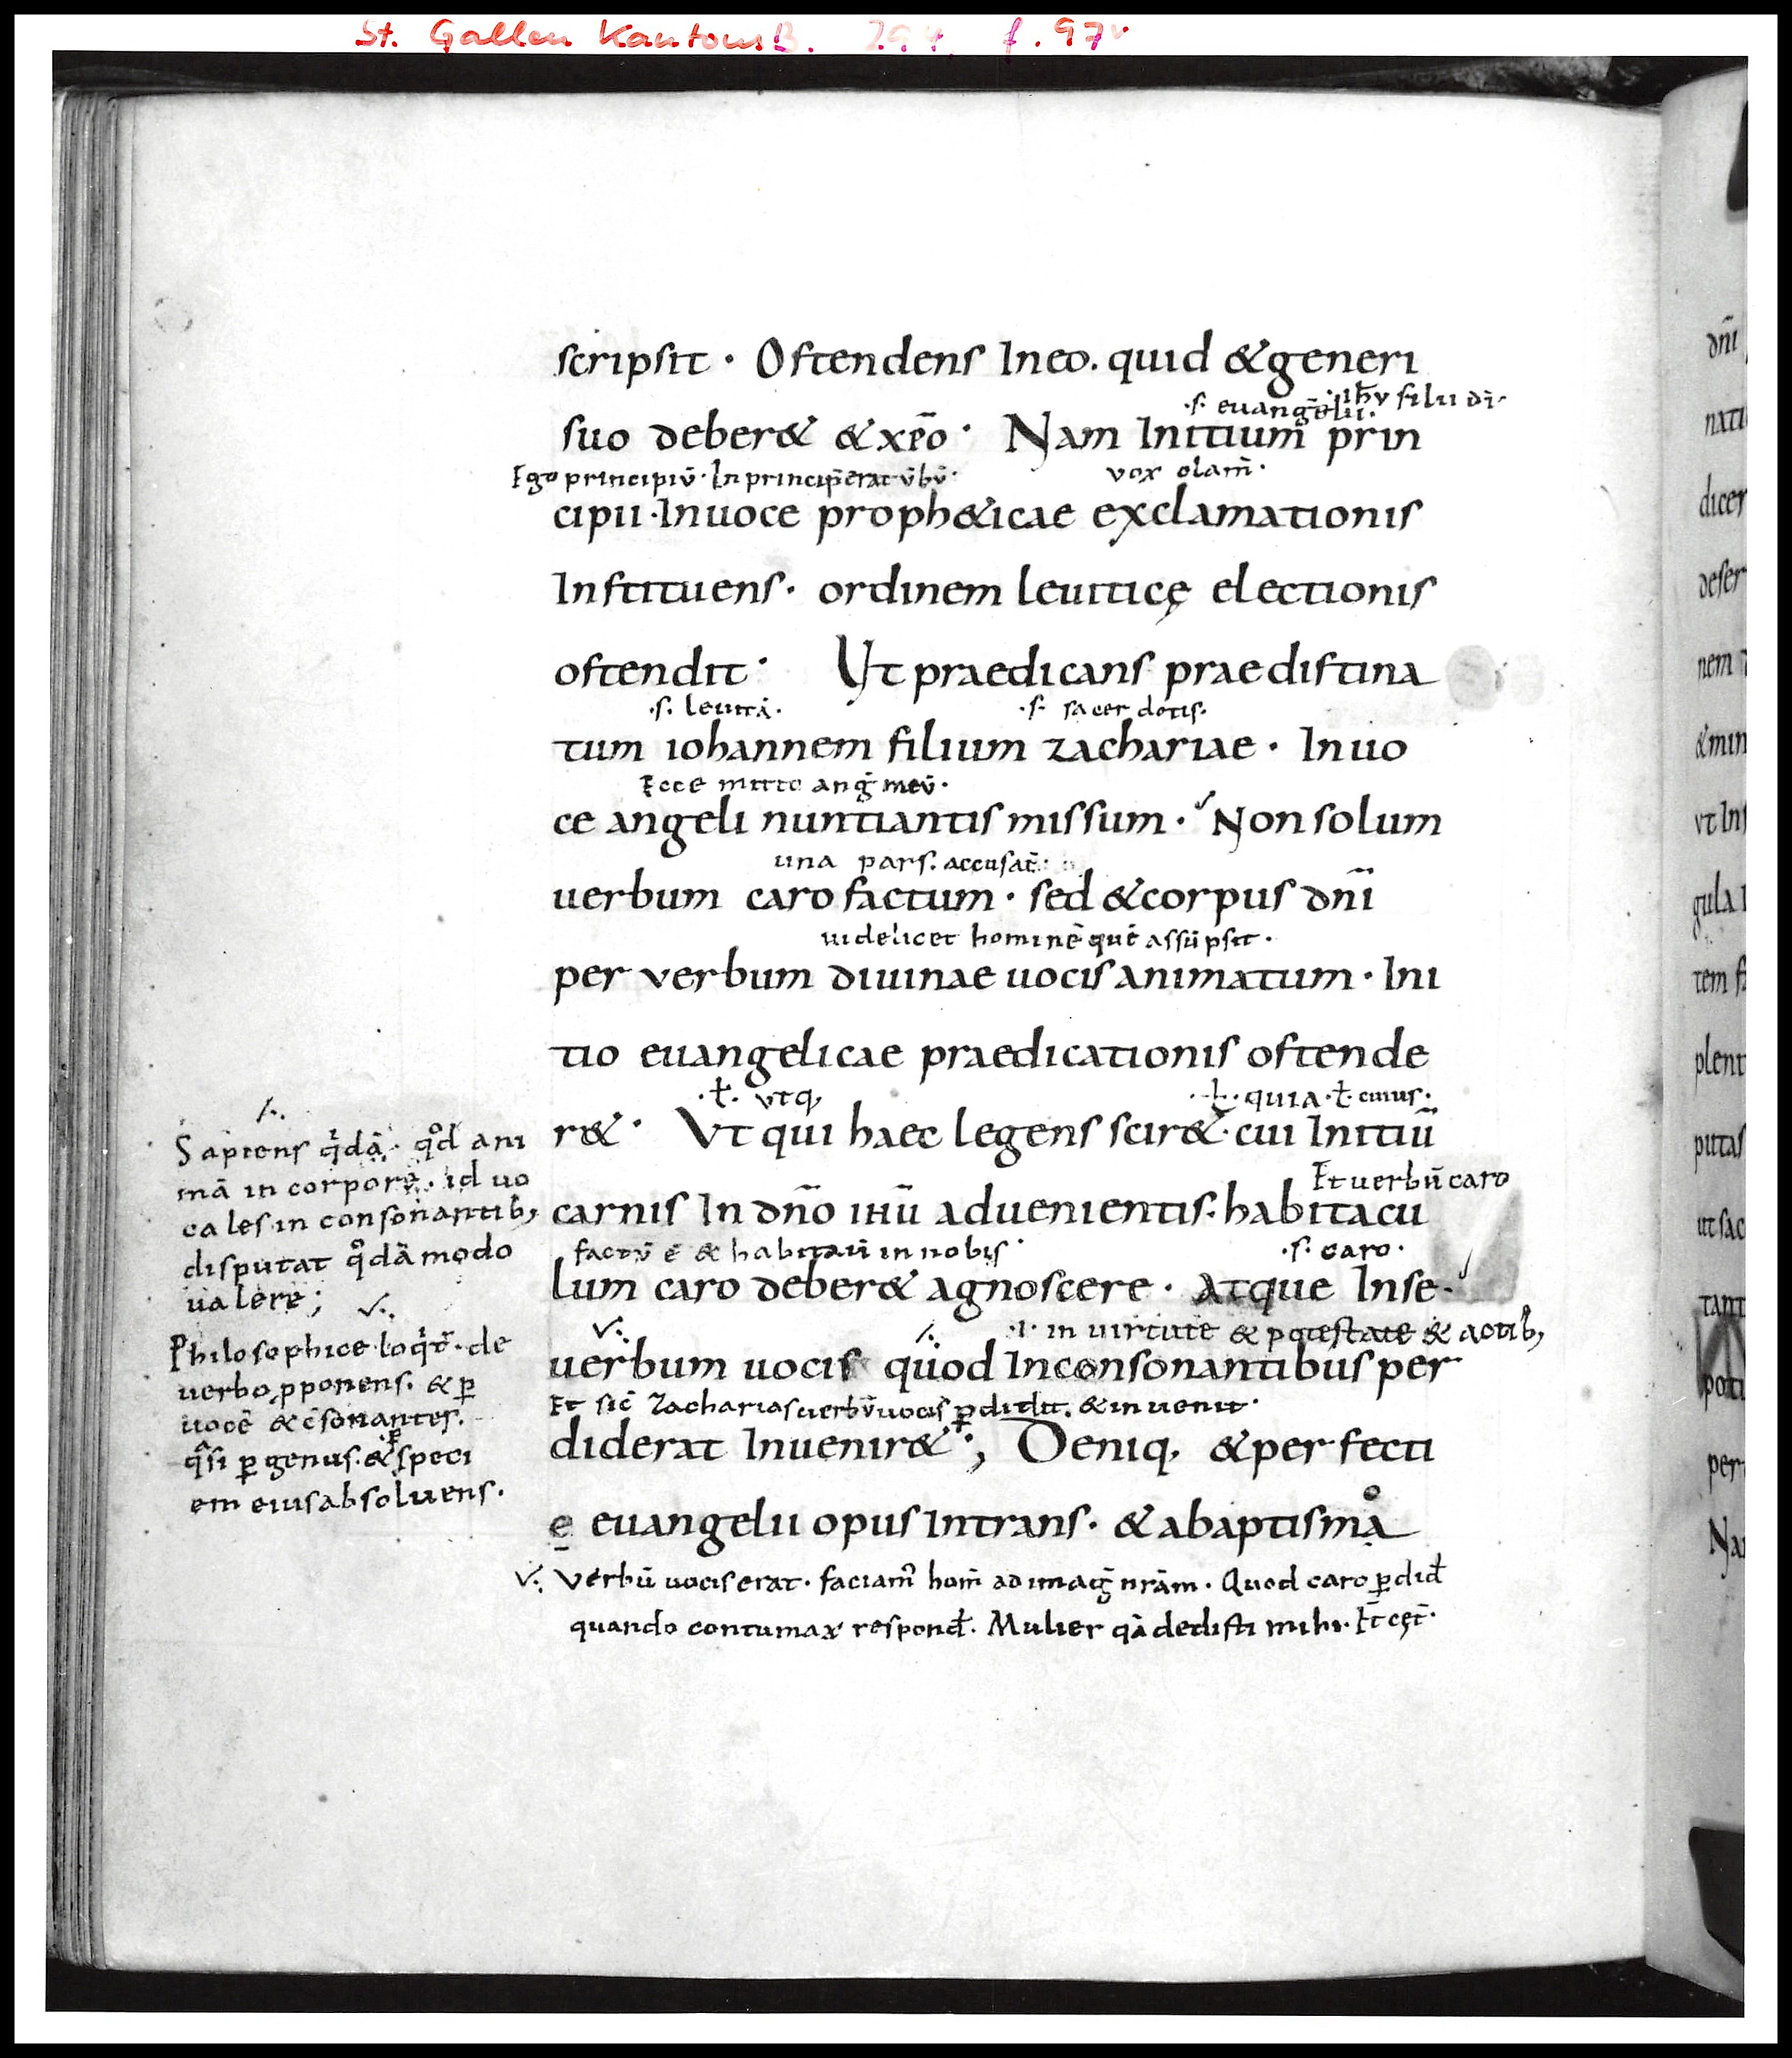 St. Gallen KantonsB. 294, f. 97v
scripsit · Ostendens In eo. quid & generi
·s· euangēlii· ·ih̄v filii dī·
suo deber& & xp̄o · Nam Initium prin
Ego principiū· In principi erat v̄bū·
vox olam̄·
cipii · In uoce proph&icae exclamationis
Instituens · ordinem leuiticę electionis
ostendit · Ut praedicans praedistina
·s· leuitā· ·s· sacerdotis·
tum iohannem filium zachariae · In uo
Ecce mitto anḡ meū·
ce angeli nuntiantis missum · Non solum
una pars. accusat̄·
uerbum caro factum · sed & corpus dn̄i
uidelicet hominē quē assūpsit ·
per verbum diuinae uocis animatum · Ini
tio euangelicae praedicationis ostende
·ł· vtq; ·ł· quia ·ł· cuius·
r& · Vt qui haec legens scir& · cui Initiū
Et uerbū caro
carnis In dn̄o ih̄ū aduenientis · habitacu
factū ē & habitauī in nobis · ·s· caro·
lum caro deber& agnoscere · Atque In se·
·i· in uirtute & potestate & actib;
uerbum uocis quod In consonantibus per
Et sic̄ Zacharias uerbū uocis p̱didit. & inuenit·
diderat Inuenir& ·; Deniq; & perfecti
ę euangelii opus Intrans · & a baptismå
Verbū uocis erat · faciam' hom̄ ad imaḡ nrām · Quod caro p̱did̄
quando contumax respond̄· Mulier quā dedisti mihi· Et cęt̄·
Sapiens q̇dā· qd̊ ani
mā in corpore · id uo
cales in consonantib;
disputat qd̊ā modo
ualere ;
Philosophice loq̇t̄· de
uerbo p̱ponens· & p̱
uocē & c̄sonantes·
q̄si p̱ genus· & p̱ speci
em eius absoluens·
dn̄i
dicer
deser
nem
&min
vt In
gula
tem
plent
putas
ut sac
tant
per
Na